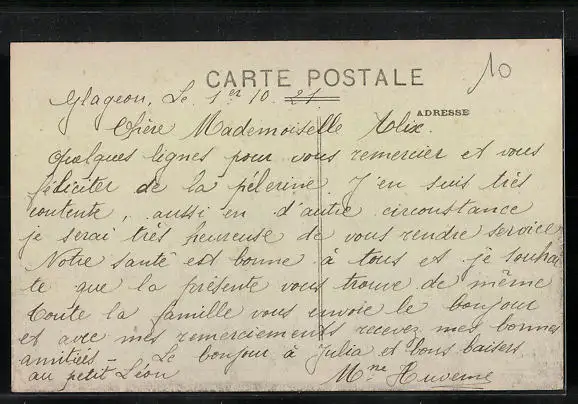 10
CARTE POSTALE
Glageon, Le 1er 10. 21
ADRESSE
Chère Mademoiselle Alix.
Quelques lignes pour vous remercier et vous
féliciter de la pélerine J'en suis très
contente, aussi en d'autre circonstance
je serai très heureuse de vous rendre service
Notre santé est bonne à tous et je souhai
te que la présente vous trouve de même
Toute la famille vous envoie le bonjour
et avec mes remerciements recevez mes bonnes
amitiées - Le bonjour à Julia et bons baisers
au petit Léon Mme Huverne